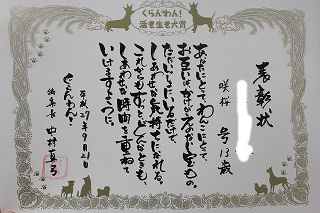 くらんわん!
活き生き犬賞
表彰状
咲桜 号 13歳
あなたにとって、わんこにとって、
お互いがかけがえのない宝もの。
ただいっしょにいるだけで、
しあわせな気持ちになれる。
これからもずっと、どんなときも、
しあわせな時間を重ねて
いけますように。
平成27年9月21日
ぐらんわん!
編集長 中村真弓